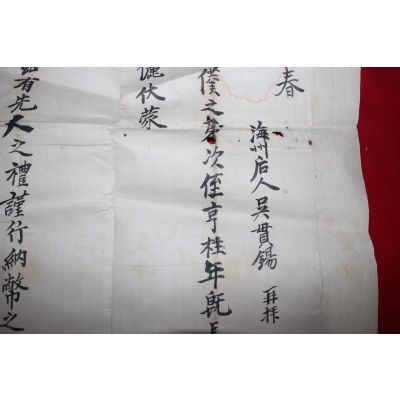 春
海州后人吳貫錫 再拜
僕之第次侄亨桂年旣
儷伏蒙
有先人之禮謹行納幣之